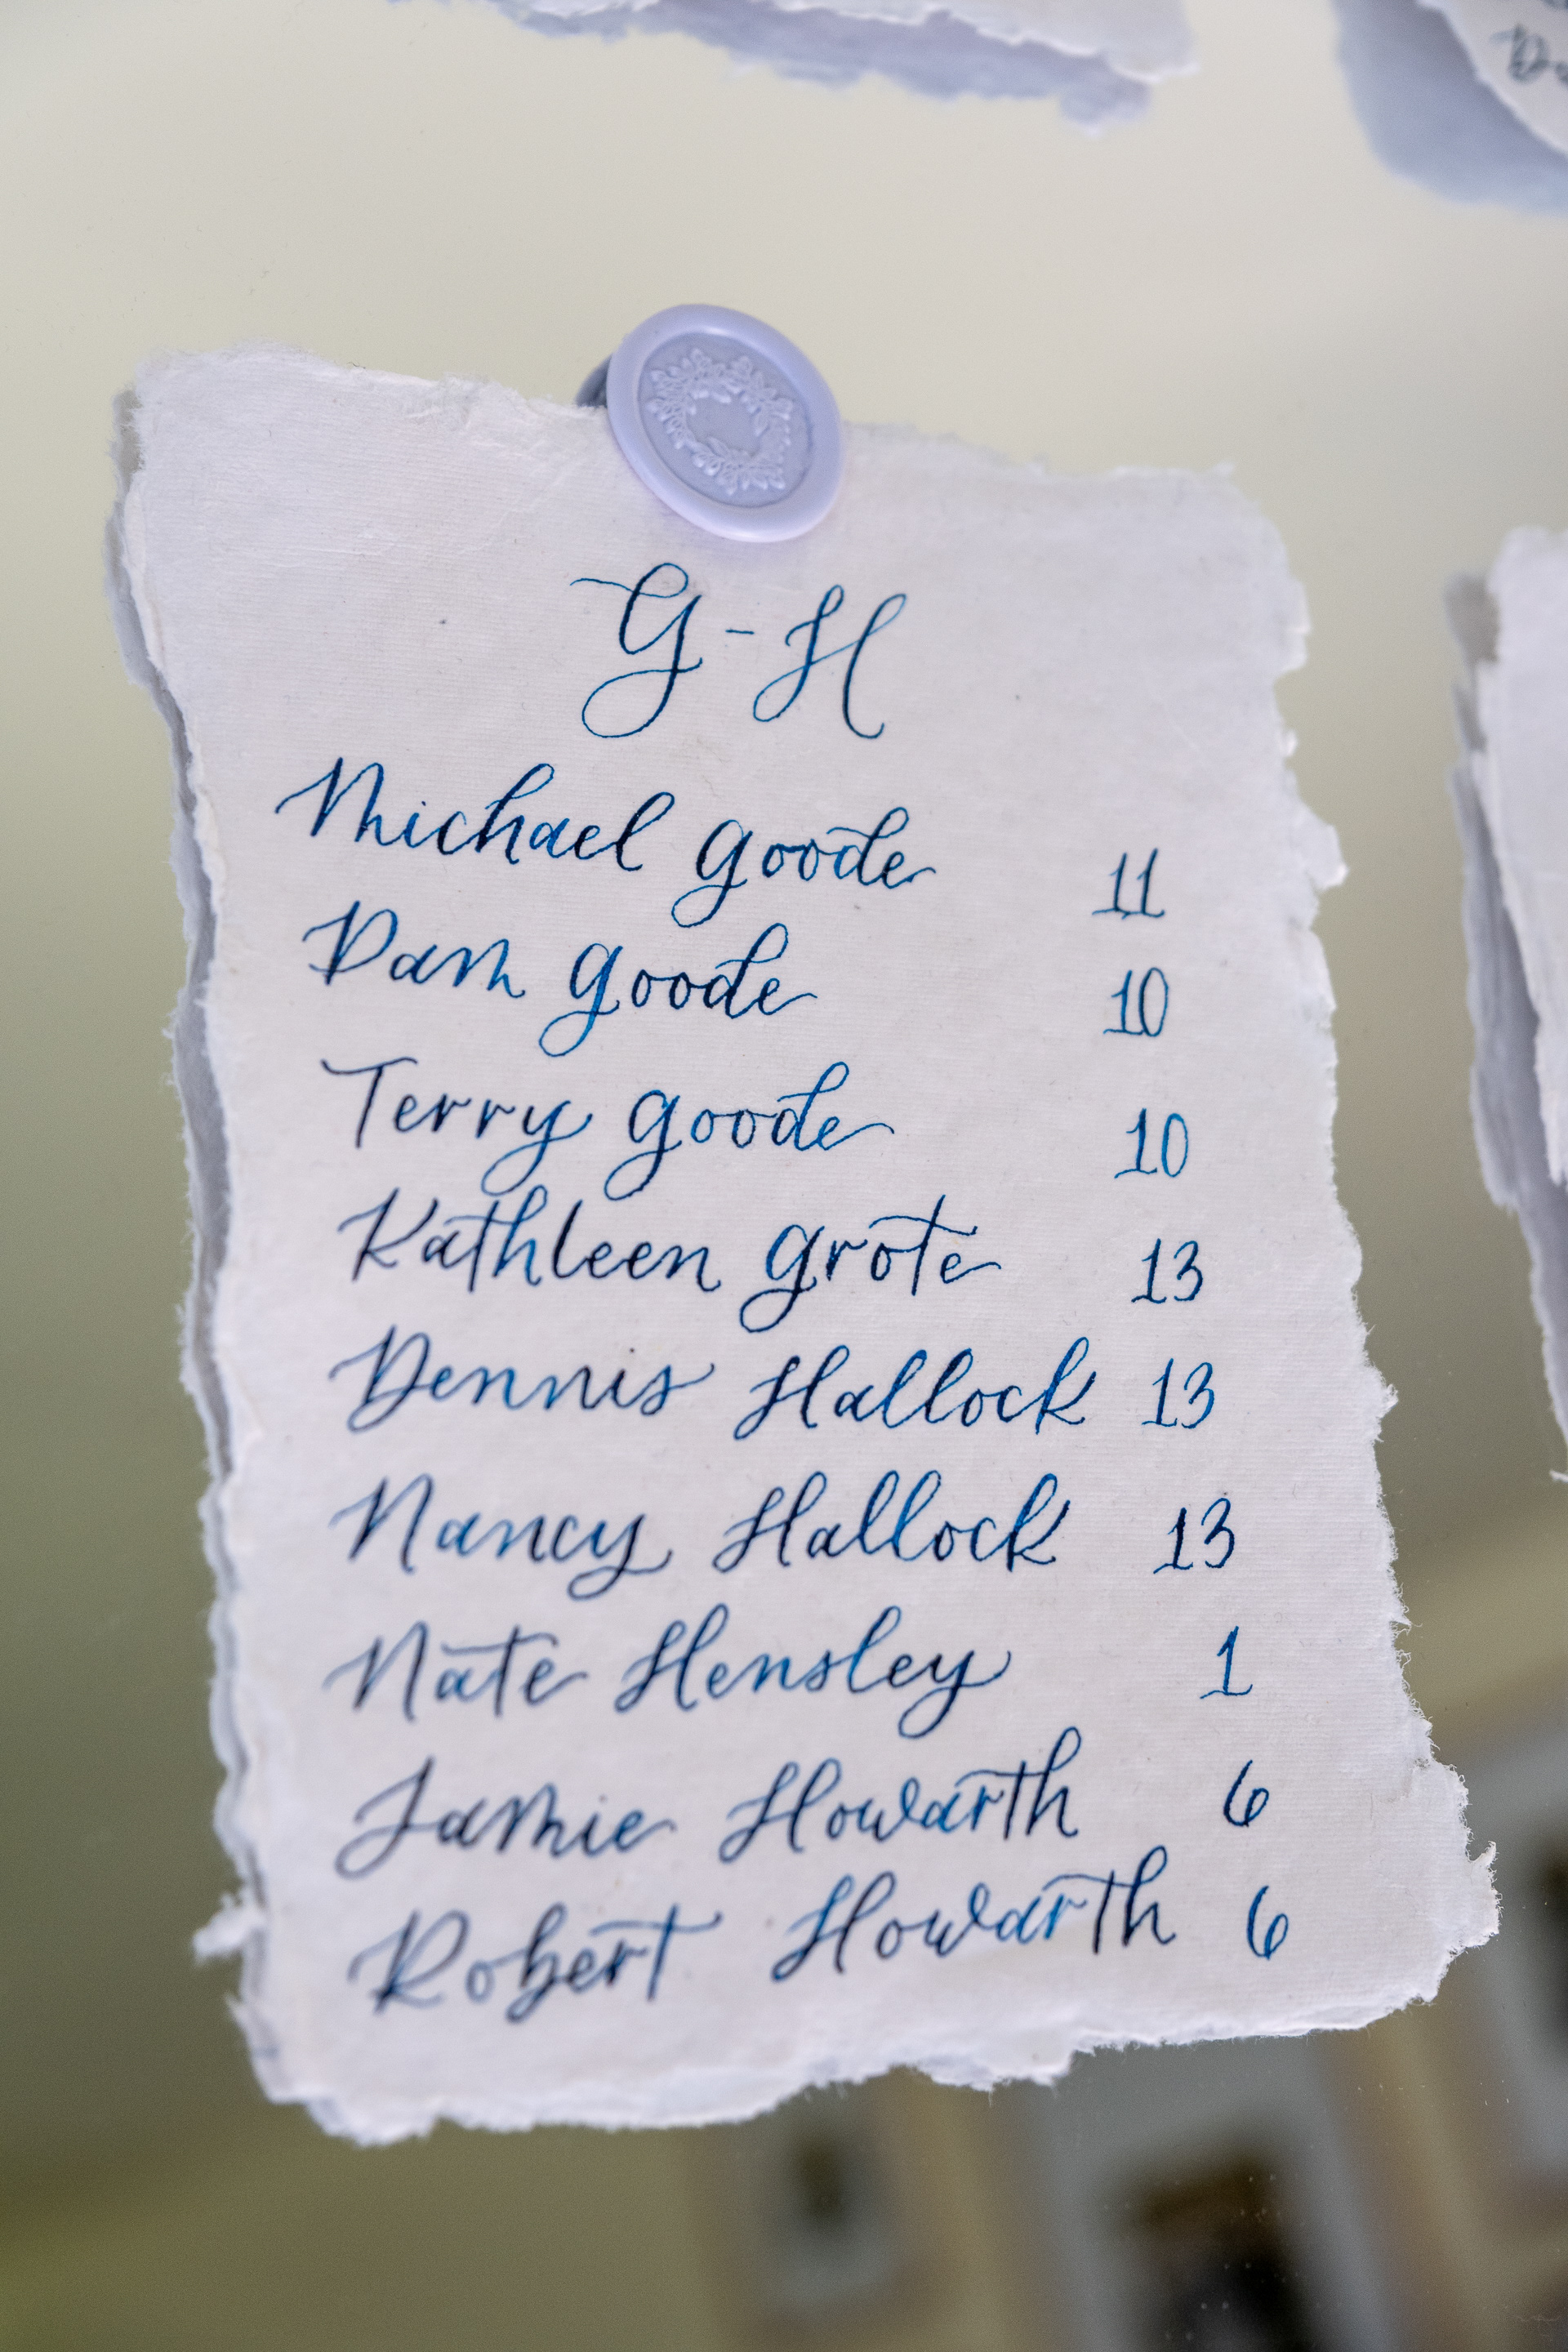 G-H
Michael Goode 11
Pam Goode 10
Terry Goode 10
Kathleen Grote 13
Dennis Hallock 13
Nancy Hallock 13
Nate Hensley 1
Jamie Howarth 6
Robert Howarth 6